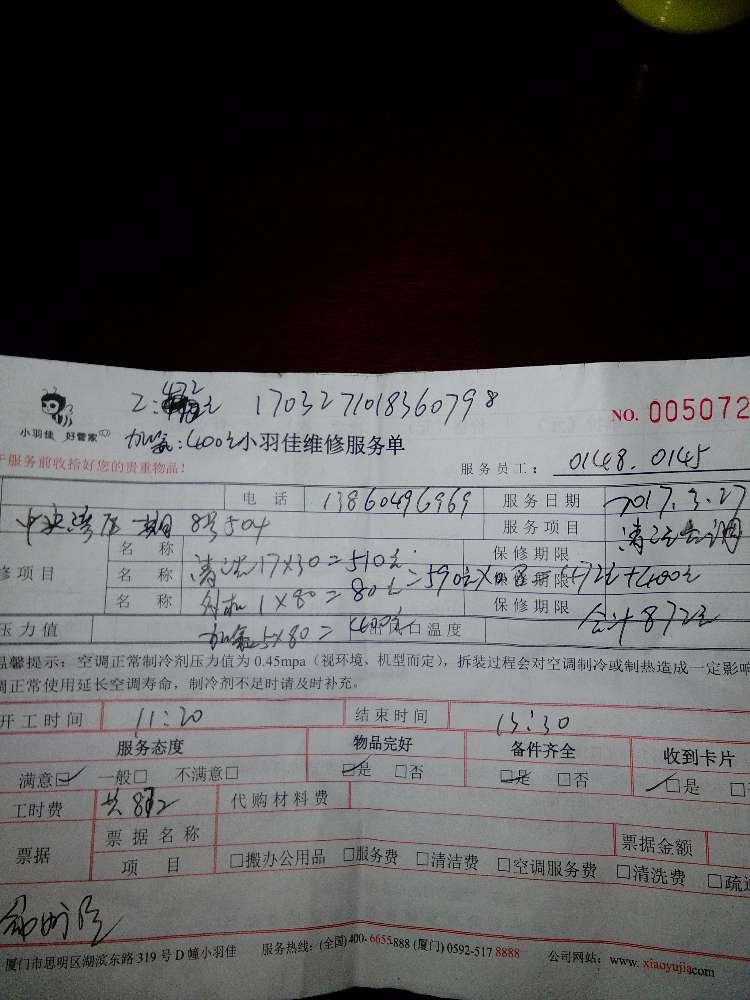 工:472元 1703271018360798
NO. 005072
小羽佳 好管家
加氨:400元 小羽佳维修服务单
服务前收拾好您的贵重物品!
服务员工: 0148.0145
电话 13860496969 服务日期 2017.3.27
中央湾区一期8号504 服务项目 清洗空调
名称 保修期限
修项目 名称 清洗17X30=510元 保修期限
名称 外机1X80=80元=590元X0.8=472元+400元 保修期限
压力值 5X80=400元 出风口温度 合计872元
温馨提示:空调正常制冷剂压力值为 0.45mpa(视环境、机型而定),拆装过程会对空调制冷或制热造成一定影响
调正常使用延长空调寿命,制冷剂不足时请及时补充。
开工时间 11:20 结束时间 15:30
服务态度 物品完好 备件齐全 收到卡片
满意☑ 一般□ 不满意□ ☑是 □否 ☑是 □否 ☑是
工时费 共872 代购材料费
票据 票据名称 票据金额
项目 □搬办公用品 □服务费 □清洁费 □空调服务费 □清洗费 □疏通
厦门市思明区湖滨东路 319 号 D 幢小羽佳 服务热线:(全国)400-6655-888 (厦门) 0592-517 8888 公司网站:www.xiaoyujia.com